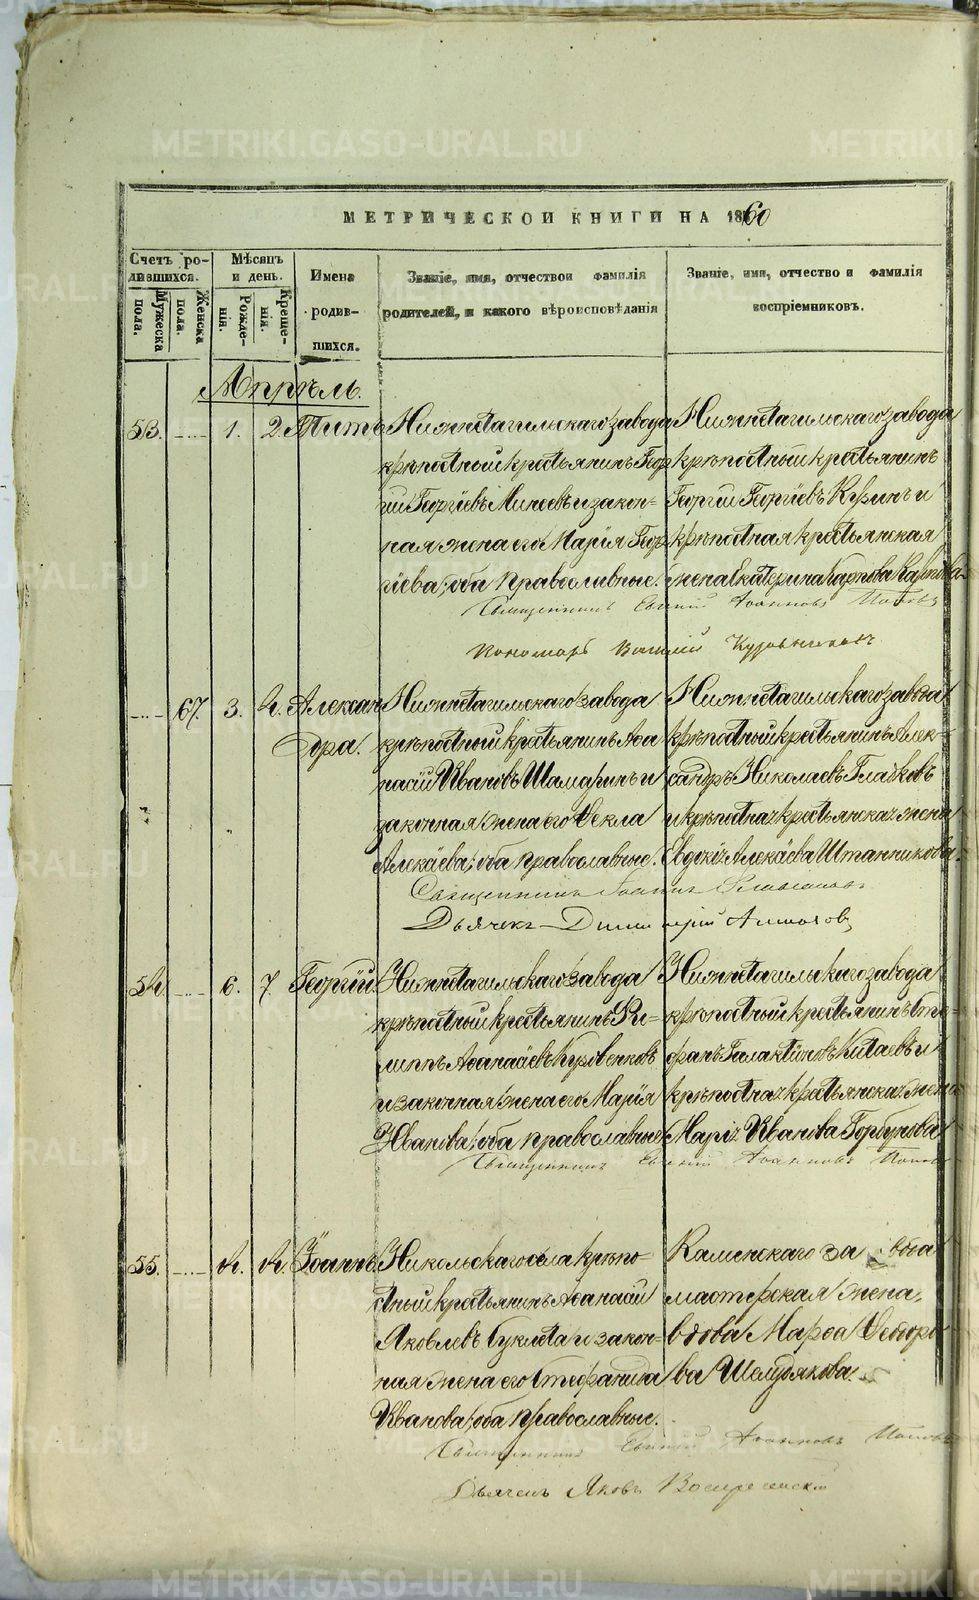 METRIKI.GASO-URAL.RU
МЕТРИЧЕСКОИ КНИГИ НА 1860
Счетъ ро-
дившихся.
Мужеска
пола.
Женска
пола.
Мѣсяцъ
и день.
Рожде-
нія.
Креще-
нія.
Имена
родив-
шихся.
Званіе, имя, отчествои фамилія
родителей, и какого вѣроисповѣданія
Званіе, имя, отчество и фамилія
воспріемниковъ.
Апрѣль.
53. 1. 2. Титъ
Нижнетагильскаго завода
крѣпостный крестьянинъ Геор
гій Георгіевъ Минеевъ и закон=
ная жена его Марія Геор
гіева; оба православные.
Нижнетагильскаго завода
крѣпостный крестьянинъ
Георгій Георгіевъ и
крѣпостная крестьянская
жена Екатерина Карпова
Священникъ Іоанновъ
Пономарь Василій
67. 3. 4. Алексан
дра.
Нижнетагильскаго завода
крѣпостный крестьянинъ Аѳа
насій Ивановъ Шамаринъ и
законная жена его Ѳекла
Алексѣева; оба православные.
Нижнетагильскаго завода
крѣпостный крестьянинъ Алек-
сандръ Николаевъ Гладковъ
и крѣпостная крестьянская жена
Евдокія Алексѣева Штанникова.
Священникъ Іоаннъ
Дьячекъ Димитрій
54. 6. 7. Георгій
Нижнетагильскаго завода
крѣпостный крестьянинъ Фи=
липпъ Аѳанасіевъ Куровенковъ
и законная жена его Марія
Иванова; оба православные
Нижнетагильскаго завода
крѣпостный крестьянинъ Сте=
фанъ Галактіоновъ Китаевъ и
крѣпостная крестьянская жена
Марія Иванова Горбунова
Священникъ Іоанновъ
55. 4. 4. Іоаннъ
Никольскаго села крѣпо=
стный крестьянинъ Аѳанасій
Яковлевъ и закон=
ная жена его Стефанида
Иванова; оба православные.
Каменскаго завода
мастерская жена,
вдова Марѳа Ѳедоро
ва Шелудякова.
Священникъ Іоанновъ
Дьячекъ Яковъ Воскресенскій